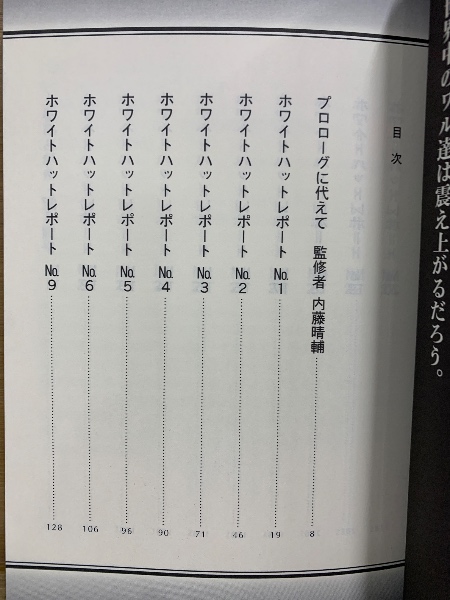 世界中のワル達は震え上がるだろう。
目次
プロローグに代えて 監修者 内藤晴輔……8
ホワイトハットレポート No.1……19
ホワイトハットレポート No.2……46
ホワイトハットレポート No.3……71
ホワイトハットレポート No.4……90
ホワイトハットレポート No.5……96
ホワイトハットレポート No.6……106
ホワイトハットレポート No.9……128